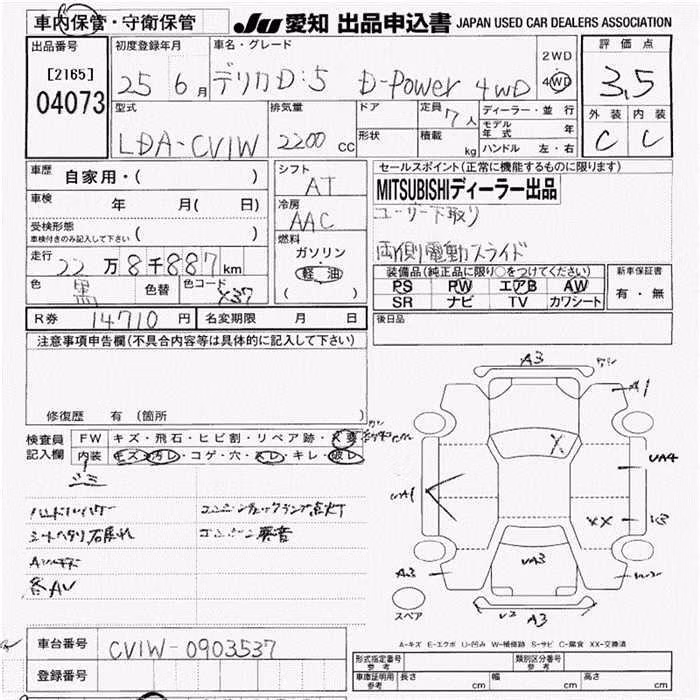 車内保管・守衛保管 JU 愛知 出品申込書 JAPAN USED CAR DEALERS ASSOCIATION
出品番号 初度登録年月 車名・グレード 評価点
[2165] 25 6月 デリカD:5 D-Power 4WD 2WD 4WD 3.5
04073
型式 排気量 ドア 定員 7人 ディーラー・並行 外装 内装
LDA-CV1W 2200 CC 形状 積載 kg モデル年式 年 C C
ハンドル 左・右
車歴 自家用・( ) シフト AT セールスポイント(正常に機能するものに限ります)
車検 年 月( 日) 冷房 AAC MITSUBISHIディーラー出品
受検形態 車検付きのみ記入して下さい ( ) 燃料 ユーザー下取り
走行 22万8千887km ガソリン 両側電動スライド
色 黒 色替 色コード X37 軽油 ( )
装備品(純正品に限り○をつけてください) 新車保証書
PS PW エアB AW 有・無
SR ナビ TV カワシート
R券 14710円 名変期限 月 日 後日品
注意事項申告欄(不具合内容等は具体的に記入して下さい)
修復歴 有 (箇所 )
検査員記入欄 FW キズ・飛石・ヒビ割・リペア跡・
内装 キズ・汚レ・コゲ・穴・スレ・キレ・破レ
シミ
エンジンチェックランプ点灯
エンジン異音
各AU
A3
A1
UA4
UA1
XX
UA3
A3
A3
スペア
A-キズ E-エクボ U-凹み W-補修跡 S-サビ C-腐食 XX-交換済
車台番号 CV1W-0903537
登録番号
形式指定番号 参考 類別区分番号 参考
車庫証明用 参考 長さ cm 幅 cm 高さ cm